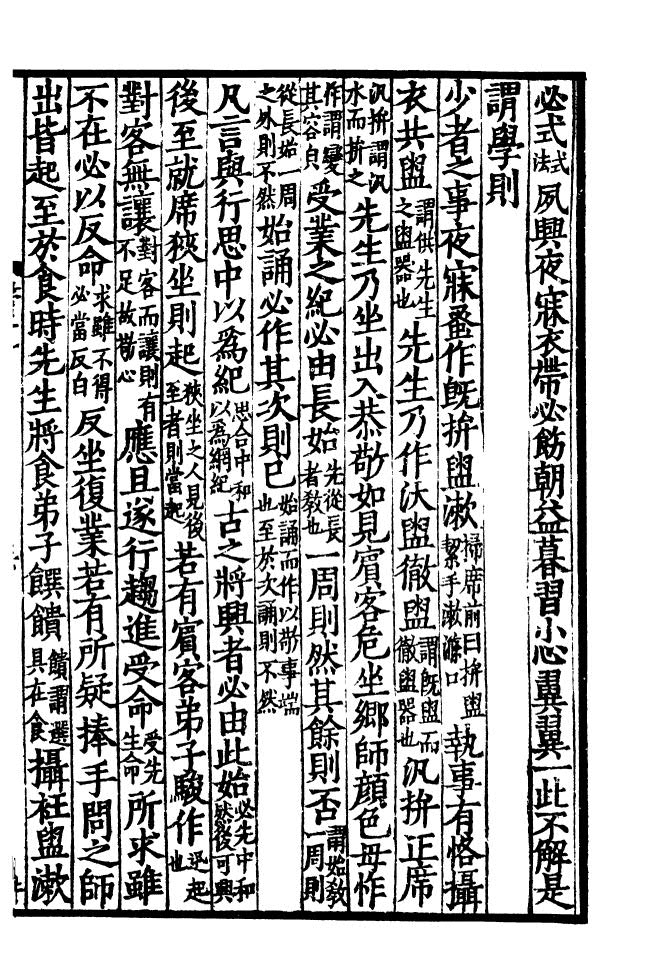 必式式法夙興夜寐衣帶必飭朝益暮習小心翼翼一此不解是
謂學則
少者之事夜寐蚤作旣拚盥漱掃席前曰拚盥絜手漱滌口執事有恪攝
衣共盥謂供先生之盥器也先生乃作沃盥徹盥謂旣盥而徹盥器也汎拚正席
汎拚謂汎水而拚之先生乃坐出入恭敬如見賓客危坐鄉師顏色毋怍
怍謂變其容貞受業之紀必由長始先從長者敎也一周則然其餘則否謂始敎一周則
從長始一周之外則不然始誦必作其次則已始誦而作以敬事端也至於次誦則不然
凡言與行思中以爲紀思合中和以爲綱紀古之將興者必由此始必先中和然後可興
後至就席狹坐則起狹坐之人見後至者則當起若有賓客弟子駿作迅起也
對客無讓對客而讓則有不足故敬心應且遂行趨進受命受先生命所求雖
不在必以反命求雖不得必當反白反坐復業若有所疑捧手問之師
出皆起至於食時先生將食弟子饌饋饋謂選具在食攝衽盥漱